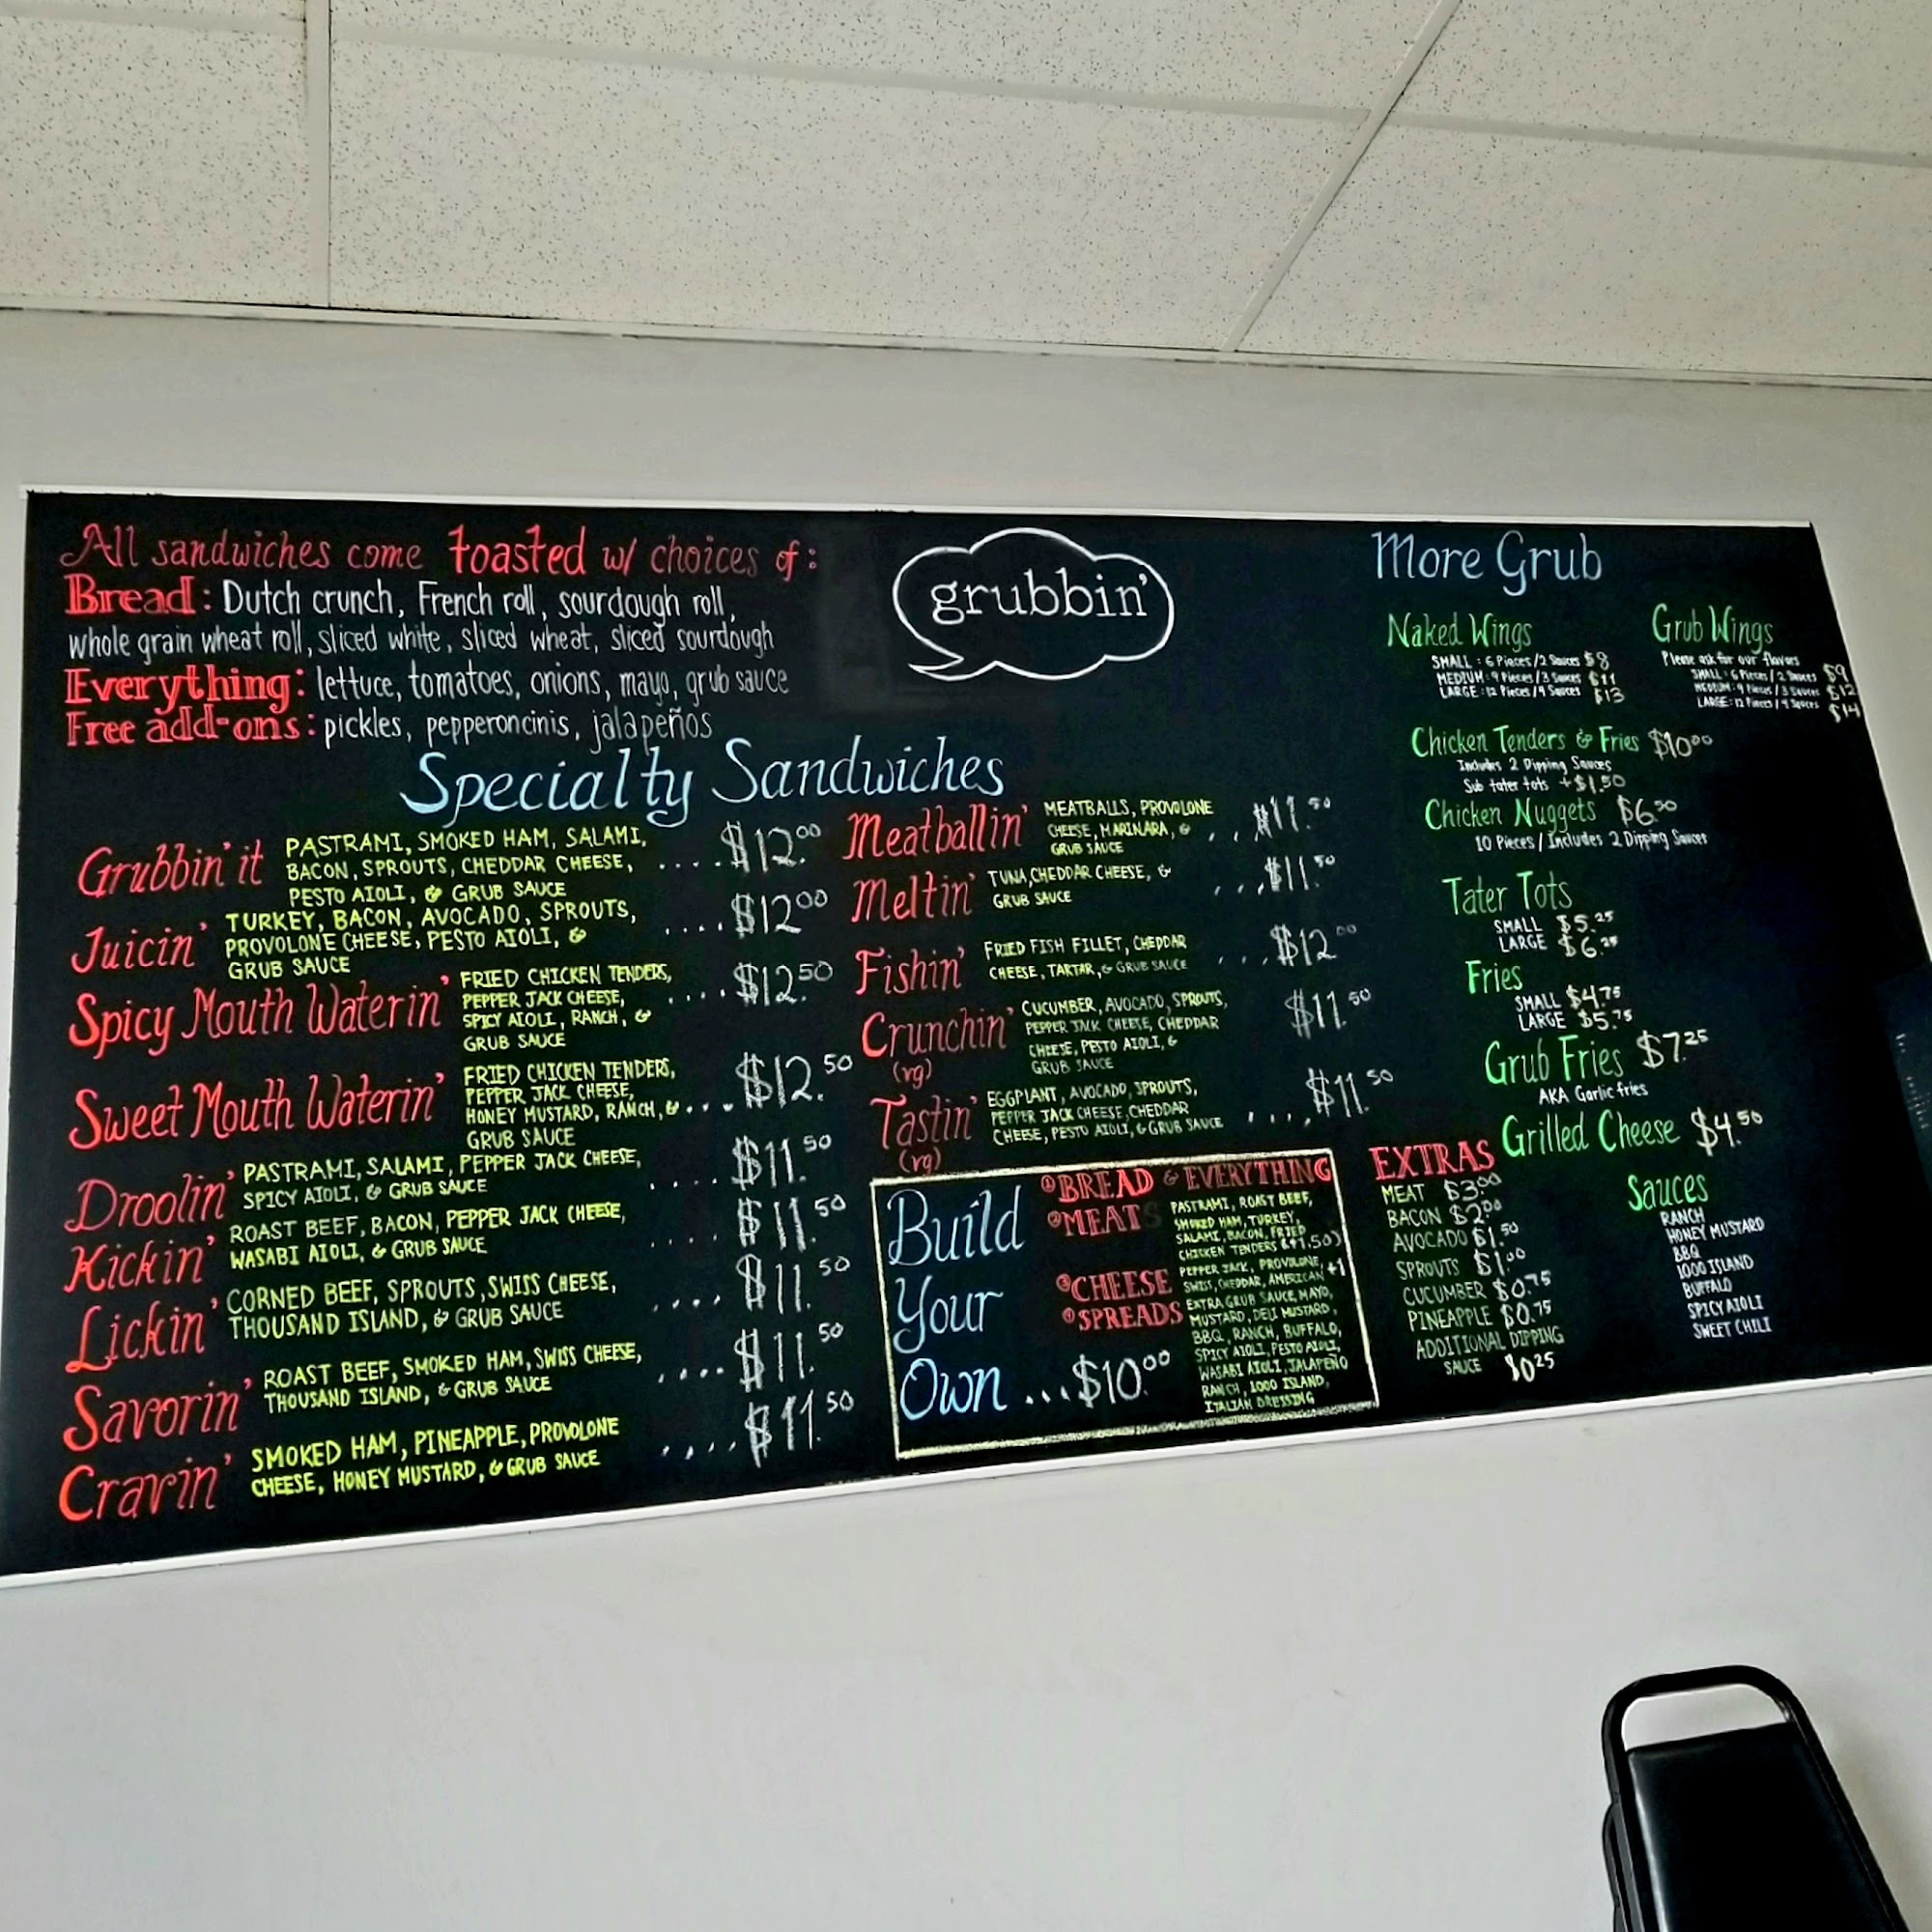 All sandwiches come toasted w/ choices of:
Bread: Dutch crunch, French roll, sourdough roll,
whole grain wheat roll, sliced white, sliced wheat, sliced sourdough
Everything: lettuce, tomatoes, onions, mayo, grub sauce
Free add-ons: pickles, pepperoncinis, jalapeños
grubbin'
Specialty Sandwiches
Grubbin' it
PASTRAMI, SMOKED HAM, SALAMI,
BACON, SPROUTS, CHEDDAR CHEESE,
PESTO AIOLI, & GRUB SAUCE
....$12.00
Juicin'
TURKEY, BACON, AVOCADO, SPROUTS,
PROVOLONE CHEESE, PESTO AIOLI, &
GRUB SAUCE
....$12.00
Spicy Mouth Waterin'
FRIED CHICKEN TENDERS,
PEPPER JACK CHEESE,
SPICY AIOLI, RANCH, &
GRUB SAUCE
....$12.50
Sweet Mouth Waterin'
FRIED CHICKEN TENDERS,
PEPPER JACK CHEESE,
HONEY MUSTARD, RANCH, &
GRUB SAUCE
...$12.50
Droolin'
PASTRAMI, SALAMI, PEPPER JACK CHEESE,
SPICY AIOLI, & GRUB SAUCE
....$11.50
Kickin'
ROAST BEEF, BACON, PEPPER JACK CHEESE,
WASABI AIOLI, & GRUB SAUCE
....$11.50
Lickin'
CORNED BEEF, SPROUTS, SWISS CHEESE,
THOUSAND ISLAND, & GRUB SAUCE
....$11.50
Savorin'
ROAST BEEF, SMOKED HAM, SWISS CHEESE,
THOUSAND ISLAND, & GRUB SAUCE
....$11.50
Cravin'
SMOKED HAM, PINEAPPLE, PROVOLONE
CHEESE, HONEY MUSTARD, & GRUB SAUCE
....$11.50
Meatballin'
MEATBALLS, PROVOLONE
CHEESE, MARINARA, &
GRUB SAUCE
...$11.50
Meltin'
TUNA, CHEDDAR CHEESE, &
GRUB SAUCE
...$11.50
Fishin'
FRIED FISH FILLET, CHEDDAR
CHEESE, TARTAR, & GRUB SAUCE
...$12.00
Crunchin'
(vg)
CUCUMBER, AVOCADO, SPROUTS,
PEPPER JACK CHEESE, CHEDDAR
CHEESE, PESTO AIOLI, &
GRUB SAUCE
$11.50
Tastin'
(vg)
EGGPLANT, AVOCADO, SPROUTS,
PEPPER JACK CHEESE, CHEDDAR
CHEESE, PESTO AIOLI, & GRUB SAUCE
....$11.50
Build
Your
Own ...$10.00
① BREAD & EVERYTHING
② MEATS
PASTRAMI, ROAST BEEF,
SMOKED HAM, TURKEY,
SALAMI, BACON, FRIED
CHICKEN TENDERS (+1.50)
③ CHEESE
PEPPER JACK, PROVOLONE,
SWISS, CHEDDAR, AMERICAN +1
④ SPREADS
EXTRA GRUB SAUCE, MAYO,
MUSTARD, DELI MUSTARD,
BBQ, RANCH, BUFFALO,
SPICY AIOLI, PESTO AIOLI,
WASABI AIOLI, JALAPEÑO
RANCH, 1000 ISLAND,
ITALIAN DRESSING
More Grub
Naked Wings
SMALL: 6 Pieces/2 Sauces $8
MEDIUM: 9 Pieces/3 Sauces $11
LARGE: 12 Pieces/4 Sauces $13
Grub Wings
Please ask for our flavors
SMALL: 6 Pieces/2 Sauces $9
MEDIUM: 9 Pieces/3 Sauces $12
LARGE: 12 Pieces/4 Sauces $14
Chicken Tenders & Fries $10.00
Includes 2 Dipping Sauces
Sub tater tots +$1.50
Chicken Nuggets $6.50
10 Pieces/Includes 2 Dipping Sauces
Tater Tots
SMALL $5.25
LARGE $6.25
Fries
SMALL $4.75
LARGE $5.75
Grub Fries $7.25
AKA Garlic fries
Grilled Cheese $4.50
EXTRAS
MEAT $3.00
BACON $2.00
AVOCADO $1.50
SPROUTS $1.00
CUCUMBER $0.75
PINEAPPLE $0.75
ADDITIONAL DIPPING
SAUCE $0.25
Sauces
RANCH
HONEY MUSTARD
BBQ
1000 ISLAND
BUFFALO
SPICY AIOLI
SWEET CHILI